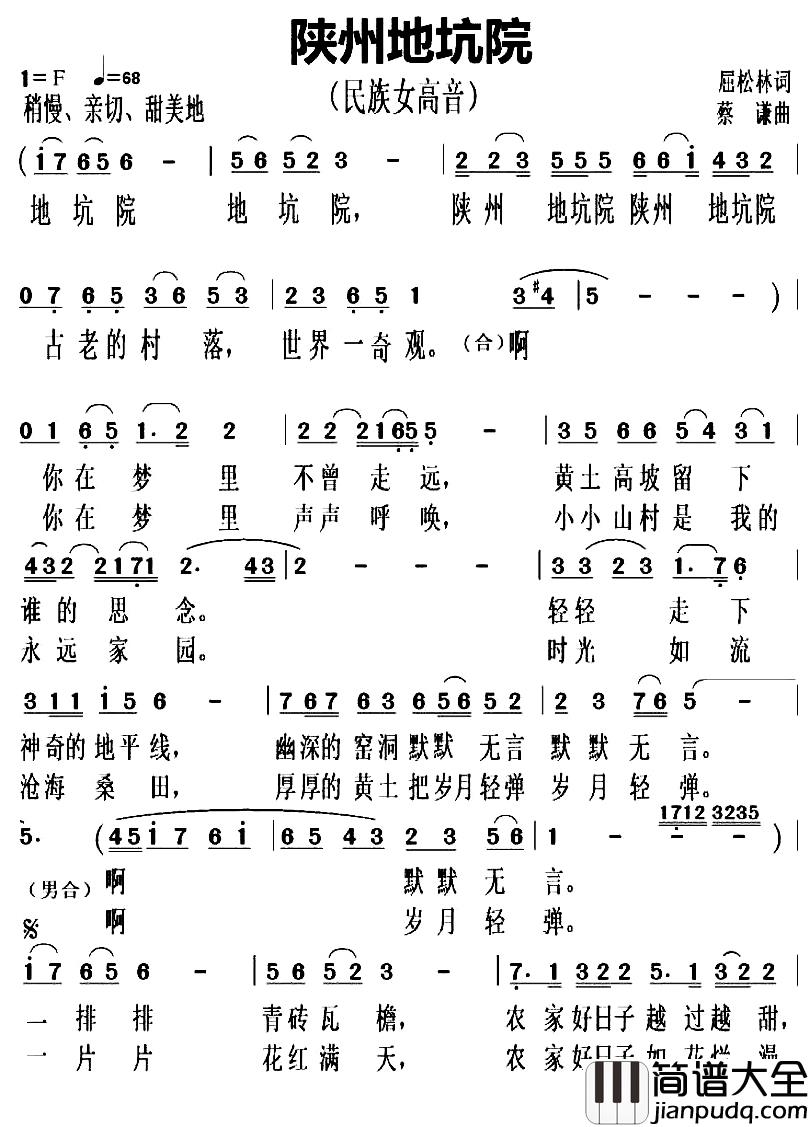 陕州地坑院
（民族女高音）
1=F ♩=68
稍慢、亲切、甜美地
屈松林词
蔡 谦曲
( i 7 6 5 6 - | 5 6 5 2 3 - | 2 2 3 5 5 5 6 6 i 4 3 2 |
地 坑 院 地 坑 院， 陕 州 地坑院 陕州 地坑院
0 7 6 5 3 6 5 3 | 2 3 6 5 1 3 #4 | 5 - - - ) |
古 老 的 村 落， 世 界 一 奇 观。（合）啊
0 1 6 5 1. 2 2 | 2 2 2 2 1 6 5 5 - | 3 5 6 6 5 4 3 1 |
你 在 梦 里 不 曾 走 远， 黄 土 高 坡 留 下
你 在 梦 里 声 声 呼 唤， 小 小 山 村 是 我 的
4 3 2 2 1 7 1 2. 4 3 | 2 - - - | 3 3 2 3 1. 7 6 |
谁 的 思 念。 轻 轻 走 下
永 远 家 园。 时 光 如 流
3 1 1 i 5 6 - | 7 6 7 6 3 6 5 6 5 2 | 2 3 7 6 5 -
神奇的 地 平 线， 幽深的 窑 洞 默 默 无 言 默 默 无 言。
沧海 桑 田， 厚厚的 黄 土 把 岁 月 轻 弹 岁 月 轻 弹。
1712 3235
5. ( 4 5 i 7 6 i | 6 5 4 3 2 3 5 6 | 1 - - - ) |
（男合） 啊 默 默 无 言。
𝄋 啊 岁 月 轻 弹。
i 7 6 5 6 - | 5 6 5 2 3 - | 7. 1 3 2 2 5. 1 3 2 2 |
一 排 排 青 砖 瓦 檐， 农 家 好日子 越 过 越 甜，
一 片 片 花 红 满 天， 农 家 好日子 如 花 烂 漫
简谱大全
jianpudq.com